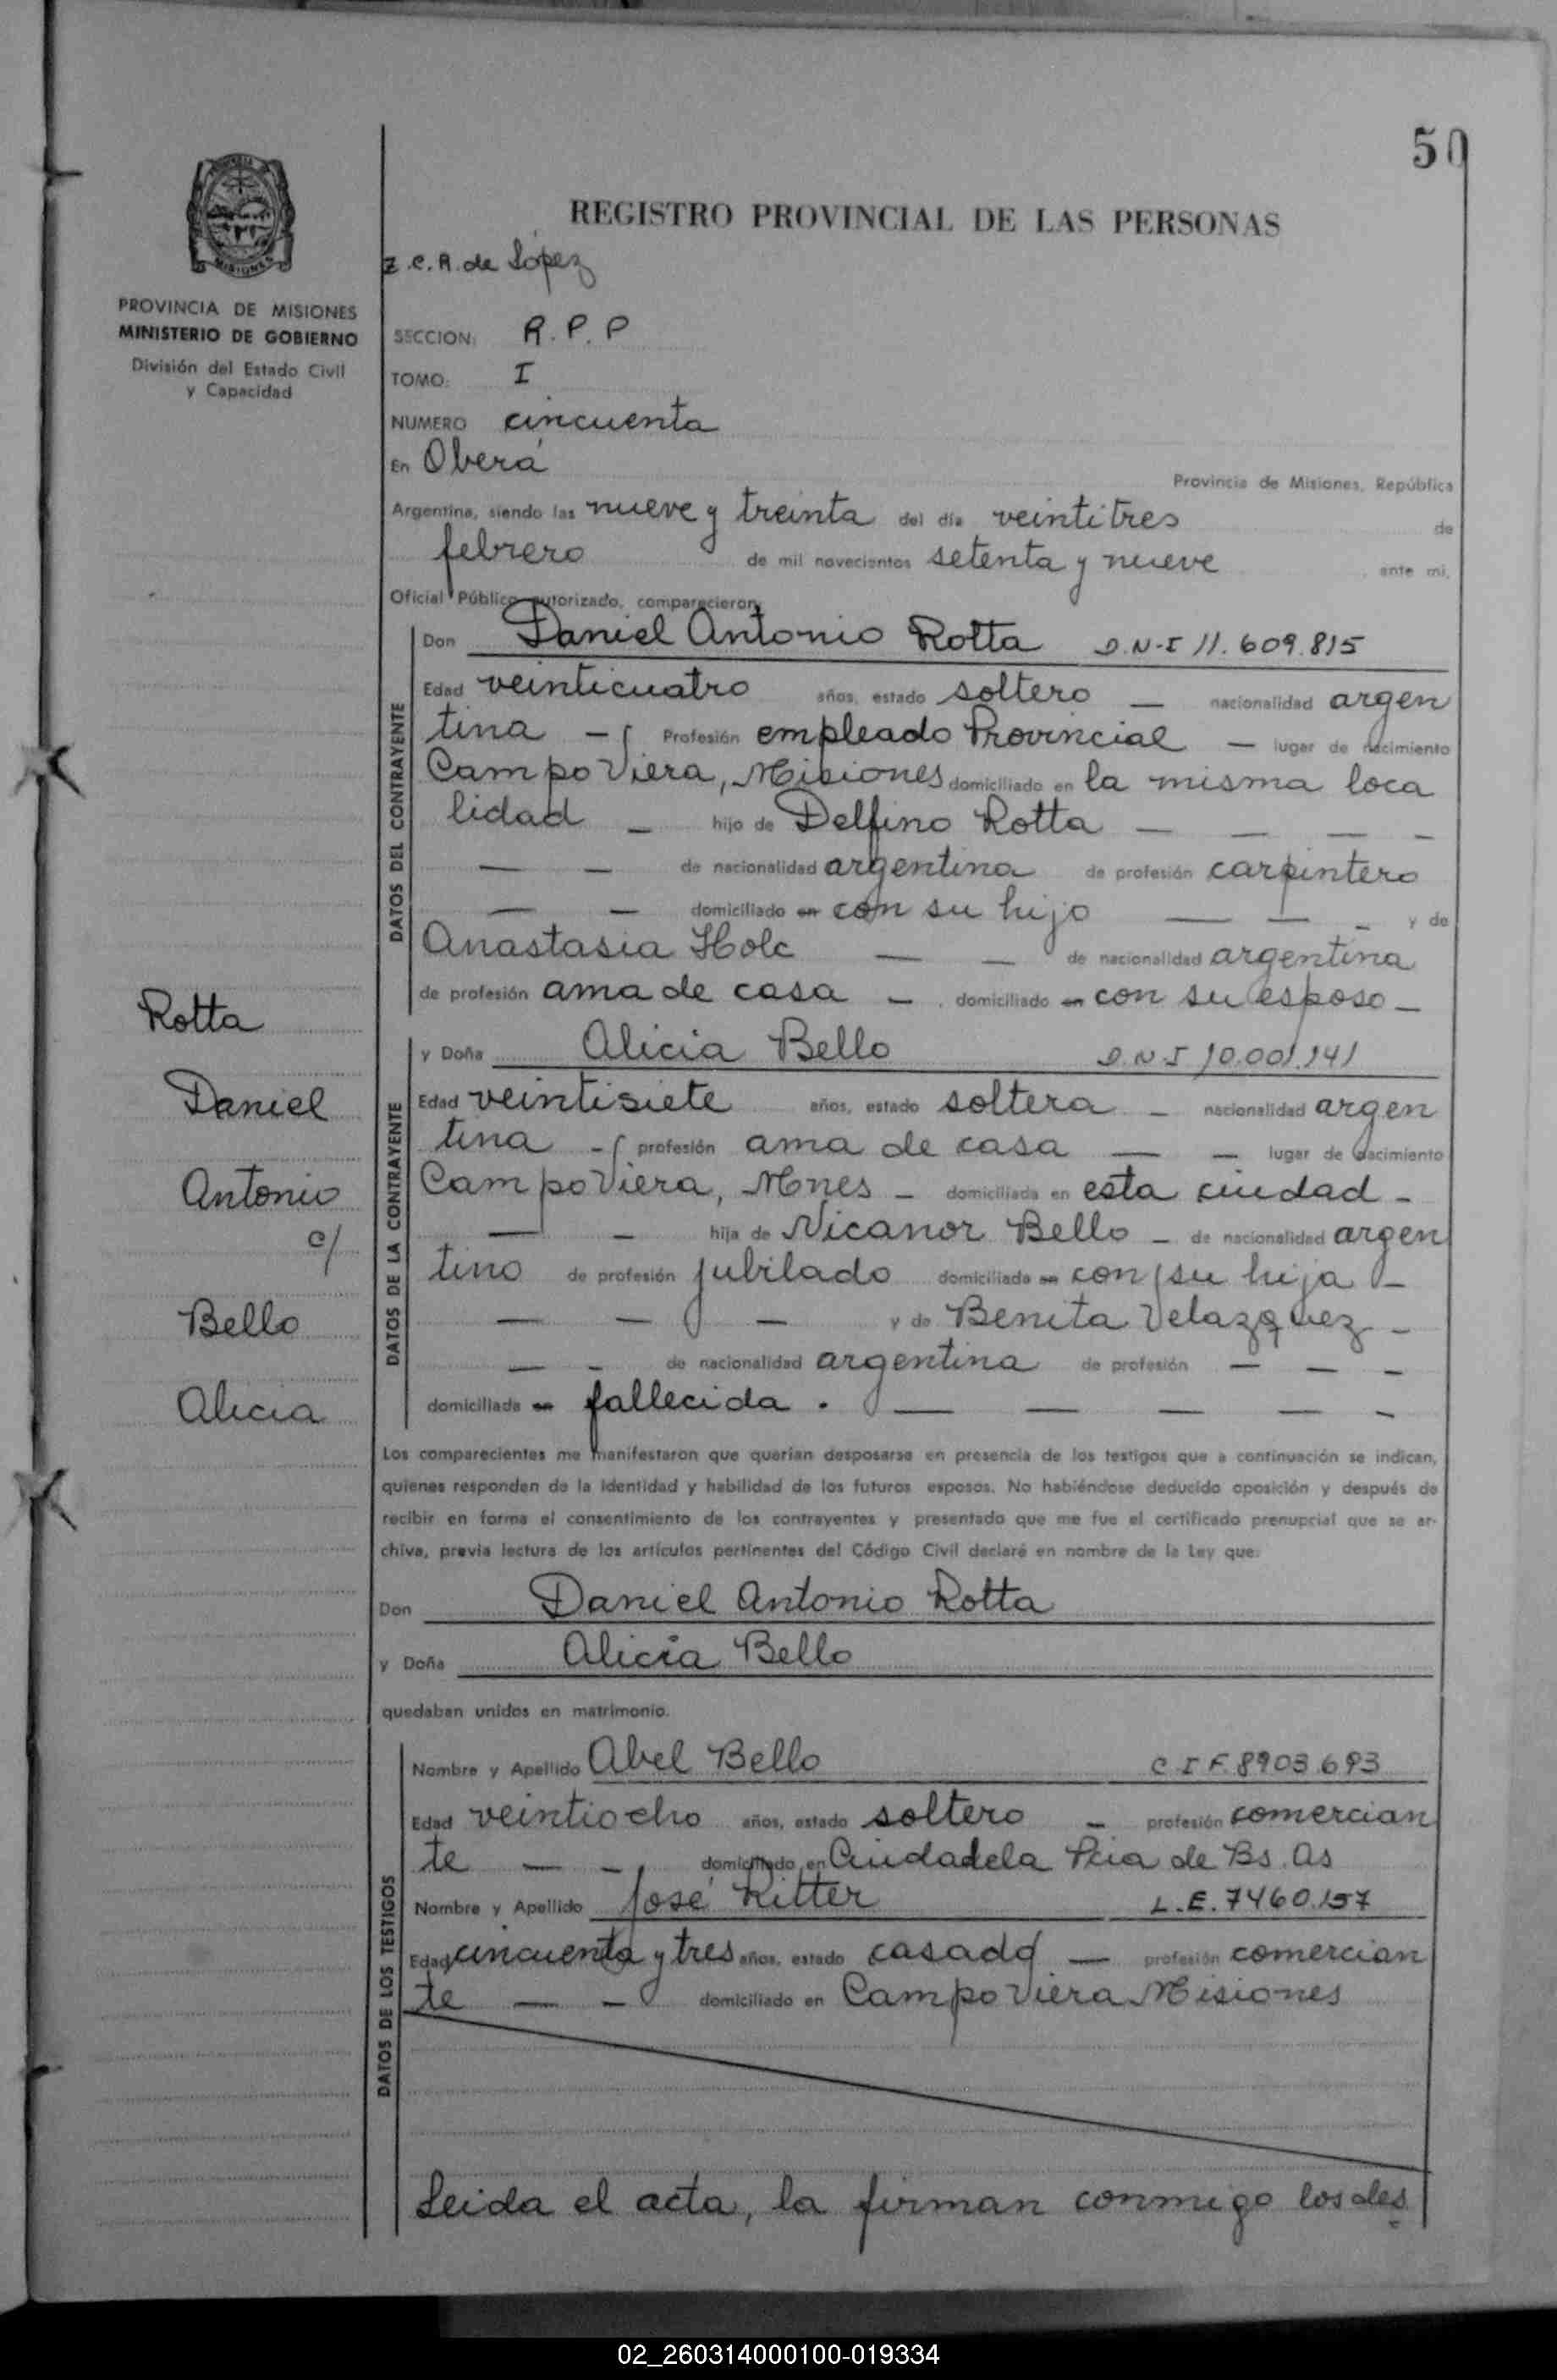 50
REGISTRO PROVINCIAL DE LAS PERSONAS
Z.C.R. de López
MISIONES
PROVINCIA DE MISIONES
MINISTERIO DE GOBIERNO
División del Estado Civil
y Capacidad
SECCION: R.P.P
TOMO: I
NUMERO cincuenta
En Oberá
Provincia de Misiones, República
Argentina, siendo las nueve y treinta del día veintitres de
febrero de mil novecientos setenta y nueve ante mi,
Oficial Público autorizado, comparecieron:
Don Daniel Antonio Rotta D.N.I 11.609.815
DATOS DEL CONTRAYENTE
Edad veinticuatro años, estado soltero — nacionalidad argen
tina — Profesión empleado Provincial — lugar de nacimiento
Campo Viera, Misiones domiciliado en la misma loca
lidad — hijo de Delfino Rotta — — — —
— — de nacionalidad argentina de profesión carpintero
— — domiciliado en con su hijo — — — y de
Anastasia Holc — — de nacionalidad argentina
de profesión ama de casa — domiciliado en con su esposo —
y Doña Alicia Bello D.N.I 10.001.141
DATOS DE LA CONTRAYENTE
Edad veintisiete años, estado soltera — nacionalidad argen
tina — profesión ama de casa — — lugar de nacimiento
Campo Viera, Mnes — domiciliada en esta ciudad —
— — hija de Nicanor Bello — de nacionalidad argen
tino de profesión jubilado domiciliado en con su hija —
— — — y de Benita Velazquez —
— — de nacionalidad argentina de profesión — — —
domiciliada en fallecida . — — — — —
Rotta
Daniel
Antonio
c/
Bello
Alicia
Los comparecientes me manifestaron que querían desposarse en presencia de los testigos que a continuación se indican,
quienes responden de la identidad y habilidad de los futuros esposos. No habiéndose deducido oposición y después de
recibir en forma el consentimiento de los contrayentes y presentado que me fue el certificado prenupcial que se ar-
chiva, previa lectura de los artículos pertinentes del Código Civil declaré en nombre de la Ley que:
Don Daniel Antonio Rotta
y Doña Alicia Bello
quedaban unidos en matrimonio.
DATOS DE LOS TESTIGOS
Nombre y Apellido Abel Bello C.I F. 8903.693
Edad veintiocho años, estado soltero — profesión comercian
te — — domiciliado en Ciudadela Pcia de Bs. As
Nombre y Apellido José Ritter L.E. 7460.157
Edad cincuenta y tres años, estado casado — profesión comercian
te — — domiciliado en Campo Viera Misiones
Leida el acta, la firman conmigo los des
02_260314000100-019334